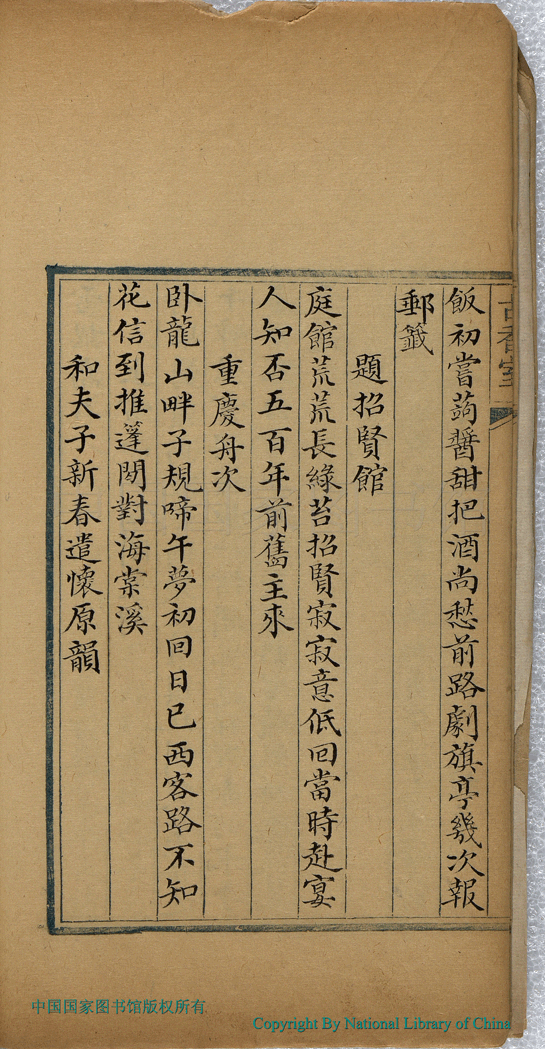 古香室
飯初嘗蒟醬甜把酒尚愁前路劇旗亭幾次報
郵籤
題招賢館
庭館荒荒長綠苔招賢寂寂意低回當時赴宴
人知否五百年前舊主來
重慶舟次
臥龍山畔子規啼午夢初回日已西客路不知
花信到推篷閒對海棠溪
和夫子新春遣懷原韻
中国国家图书馆版权所有
Copyright By National Library of China